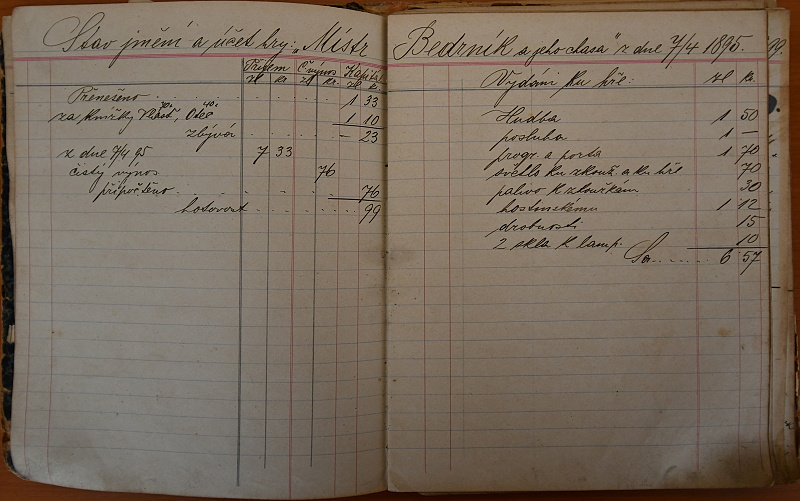 Stav jmění a účet hry: „Mistr
Příjem Č. výnos Kapitál
zl. kr. zl. kr. zl. k.
Přenešeno . . . . 1 33
za knížky Vlast, 70. Otel 40. 1 10
zbývá . . . . — 23
z dne 7/4 95 7 33
čistý výnos 76
připočteno . . . . 76
hotovost . . . . 99
Bedrník a jeho chasa" z dne 7/4 1895.
Vydání ku hře: zl. kr.
Hudba 1 50
posluha 1 —
progr. a porta 1 70
světlo ku zkouš. a ku hře 70
palivo k zkouškám 30
hostinskému 1 12
drobnosti 15
2 skla k lamp. 10
Sa. . . . . 6 57